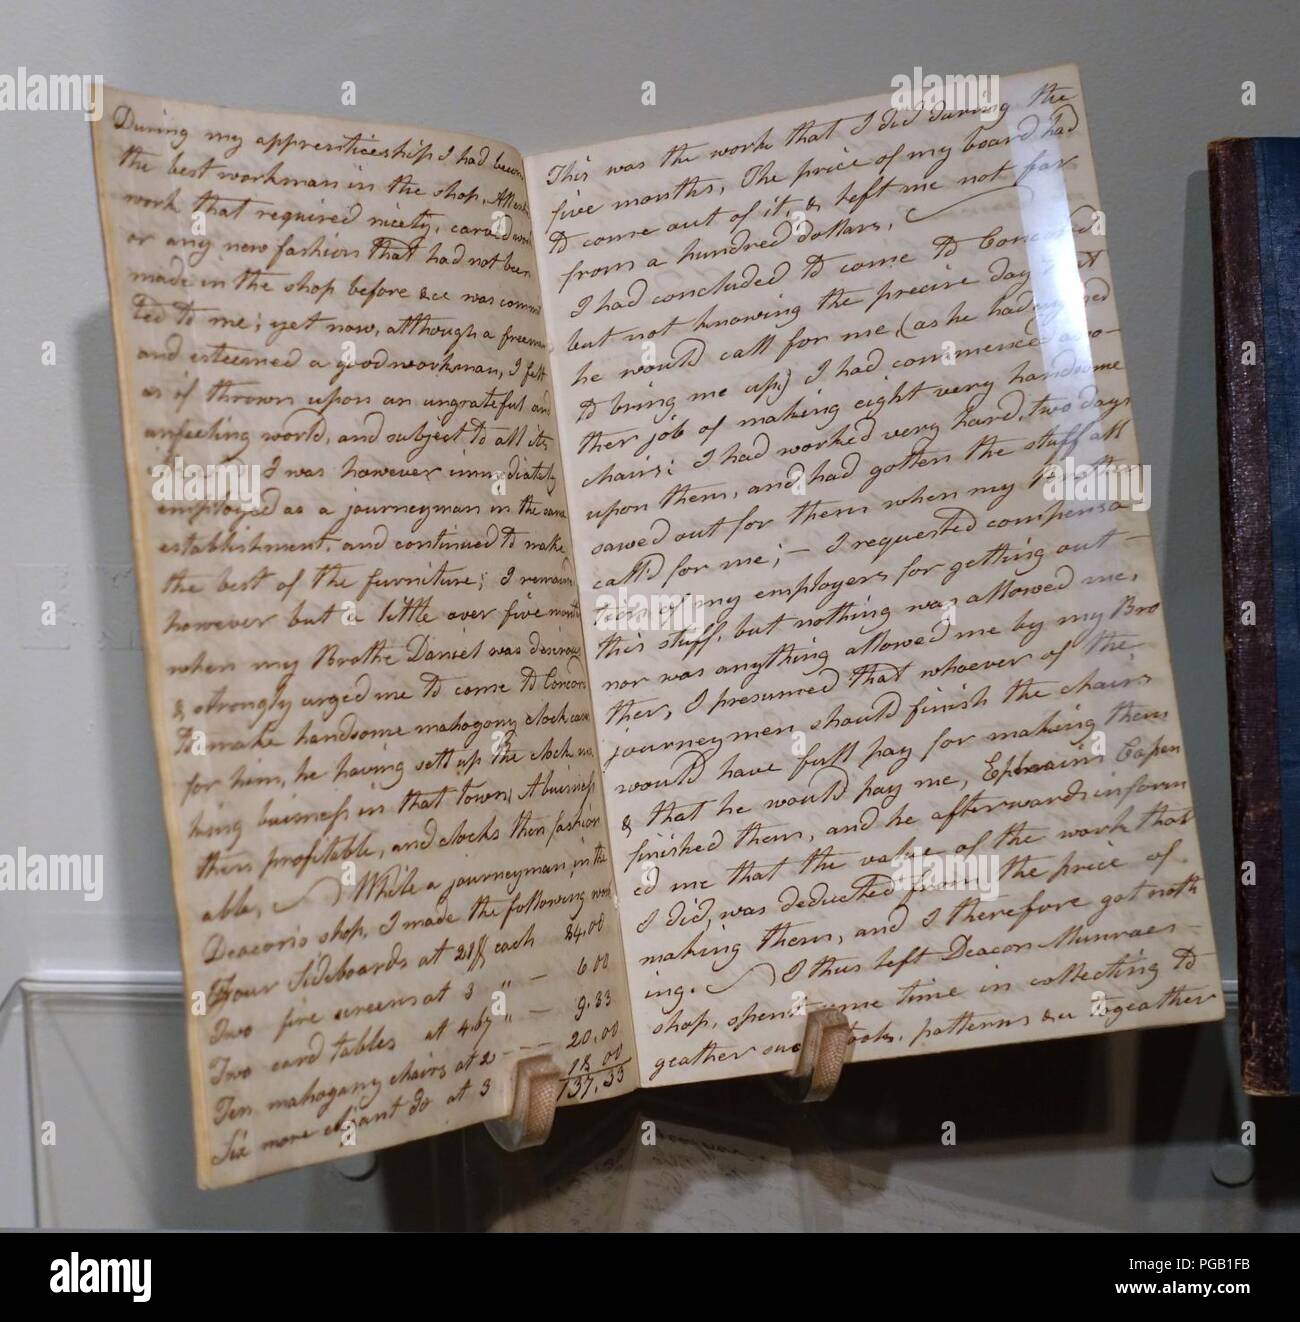 During my apprenticeship I had becom
the best workman in the shop, All the
work that required nicety, carved work
or any new fashion that had not been
made in the shop before &c was commit
ted to me; yet now, although a freeman
and esteemed a good workman, I felt
as if thrown upon an ungrateful and
unfeeling world, and subject to all its
I was however immediately
employed as a journeyman in the same
establishment, and continued to make
the best of the furniture; I remained
however but a little over five months
when my Brothe Daniel was desirous
& strongly urged me to come to Concord
to make handsome mahogany clock cases
for him, he having sett up the clock ma
king buisness in that town; A buisness
then profitable, and clocks then fashion
able, While a journeyman, in the
Deacon's shop, I made the following work
Four Sideboards at 21 $ each 84,00
Two fire screens at 3 " — 6.00
Two card tables at 4.67 " — 9.33
Ten mahogany chairs at 2 — 20,00
Six more eligant Do at 3 18 00
137,33
This was the work that I did during the
five months, The price of my board had
to come out of it, & left me not far
from a hundred dollars,
I had concluded to come to Concord
but not knowing the precise day that
he would call for me (as he had
to bring me up,) I had commenced ano-
ther job of making eight very handsome
chairs: I had worked very hard, two days
upon them, and had gotten the stuff all
sawed out for them when my Brother
call'd for me; — I requested compensa
tion of my employers for getting out —
this stuff, but nothing was allowed me,
nor was anything allowed me by my Bro
ther, I presumed that whoever of the
journeymen should finish the chairs
would have full pay for making them
& that he would pay me, Ephraim Capen
finished them, and he afterwards inform
ed me that the value of the work that
I did, was deducted from the price of
making them, and I therefore got noth
ing. I thus left Deacon Munroes —
shop, spent some time in collecting to
geather our tools, patterns &c togeather
alamy
a
alamy
a
alamy
a
alamy
a
alamy
a
alamy
Image ID: PGB1FB
www.alamy.com